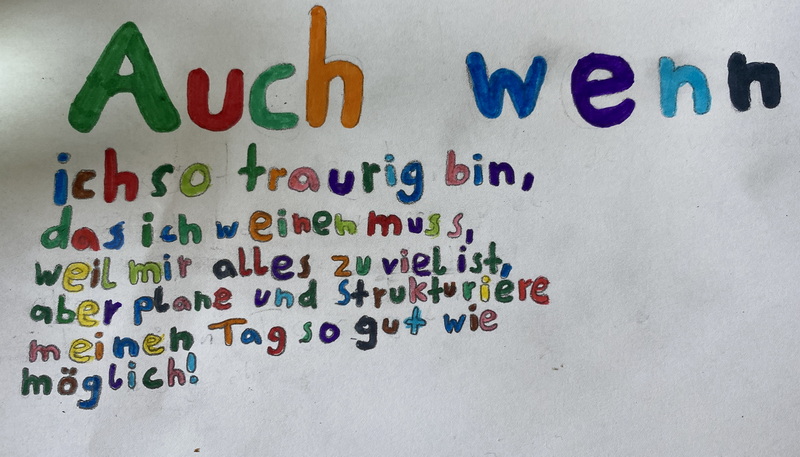 Auch wenn
ich so traurig bin,
das ich weinen muss,
weil mir alles zu viel ist,
aber plane und strukturiere
meinen Tag so gut wie
möglich!